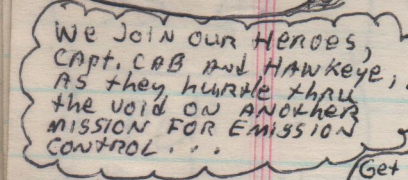 We Join our Heroes,
Capt. CAB And HAWKeye,
As they hurtle thru
the void on ANother
MISSION FOR EMISSION
CONTROL...
Get